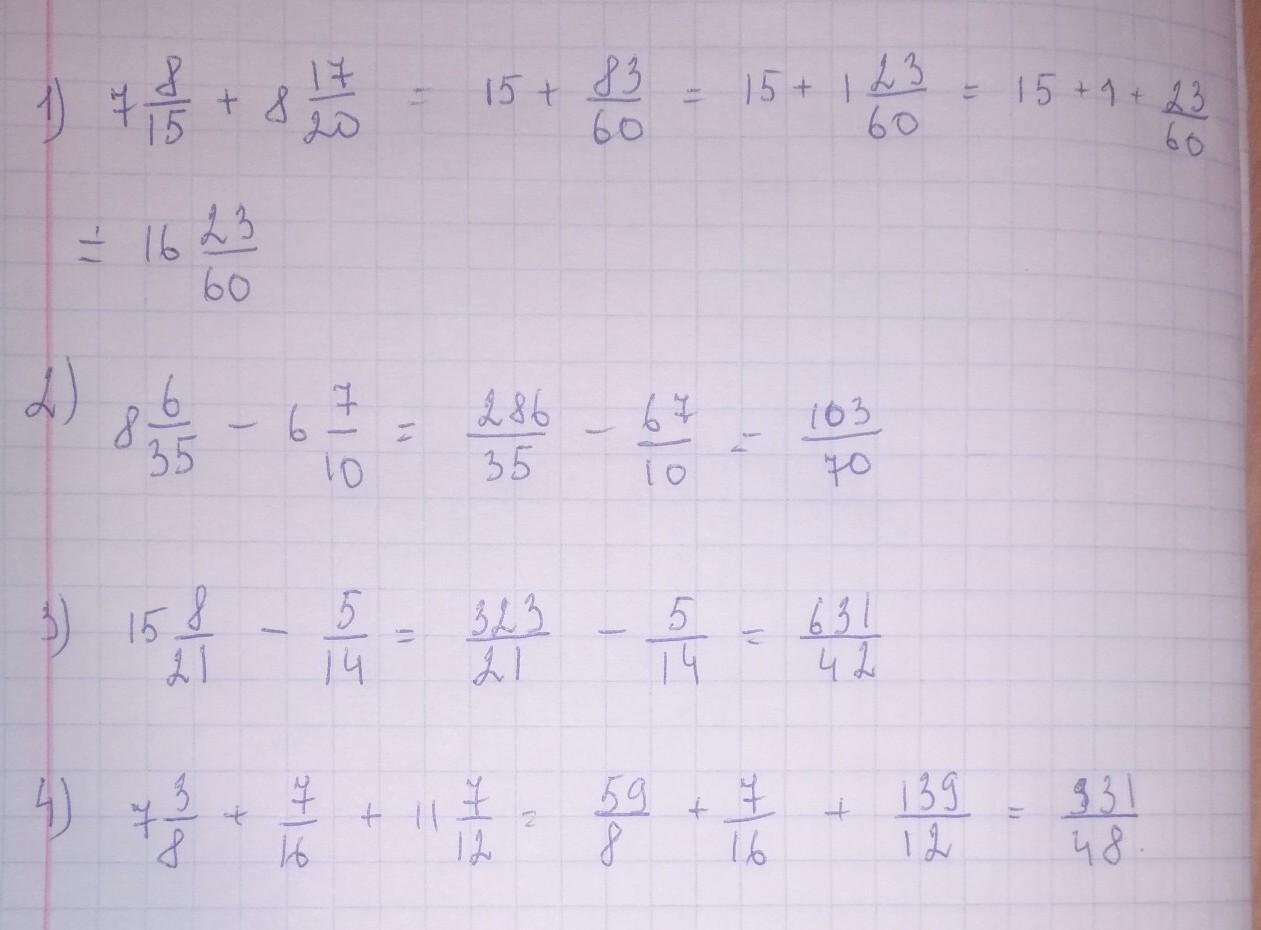 1) 7 8/15 + 8 17/20 = 15 + 83/60 = 15 + 1 23/60 = 15 + 1 + 23/60
= 16 23/60
2) 8 6/35 - 6 7/10 = 286/35 - 67/10 = 103/70
3) 15 8/21 - 5/14 = 323/21 - 5/14 = 631/42
4) 7 3/8 + 7/16 + 11 7/12 = 59/8 + 7/16 + 139/12 = 931/48.